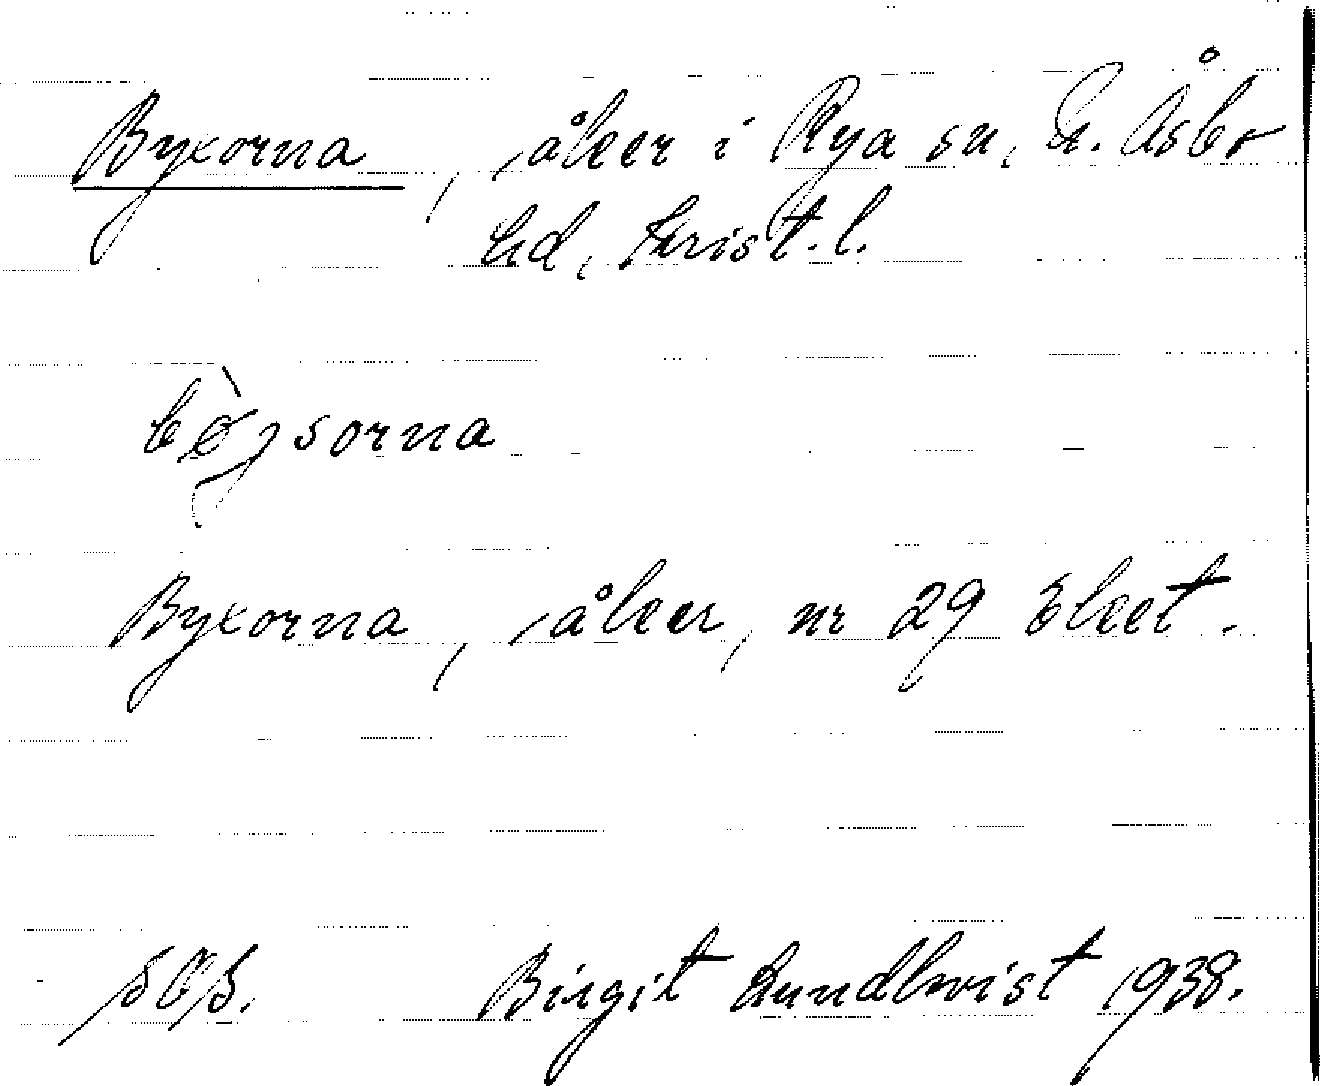 Byxorna, åker i Rya sn, N. Åsbo
hd, Krist. l.
Byxorna, åker, nr 29 Eket.
Birgit Lundkvist 1938.